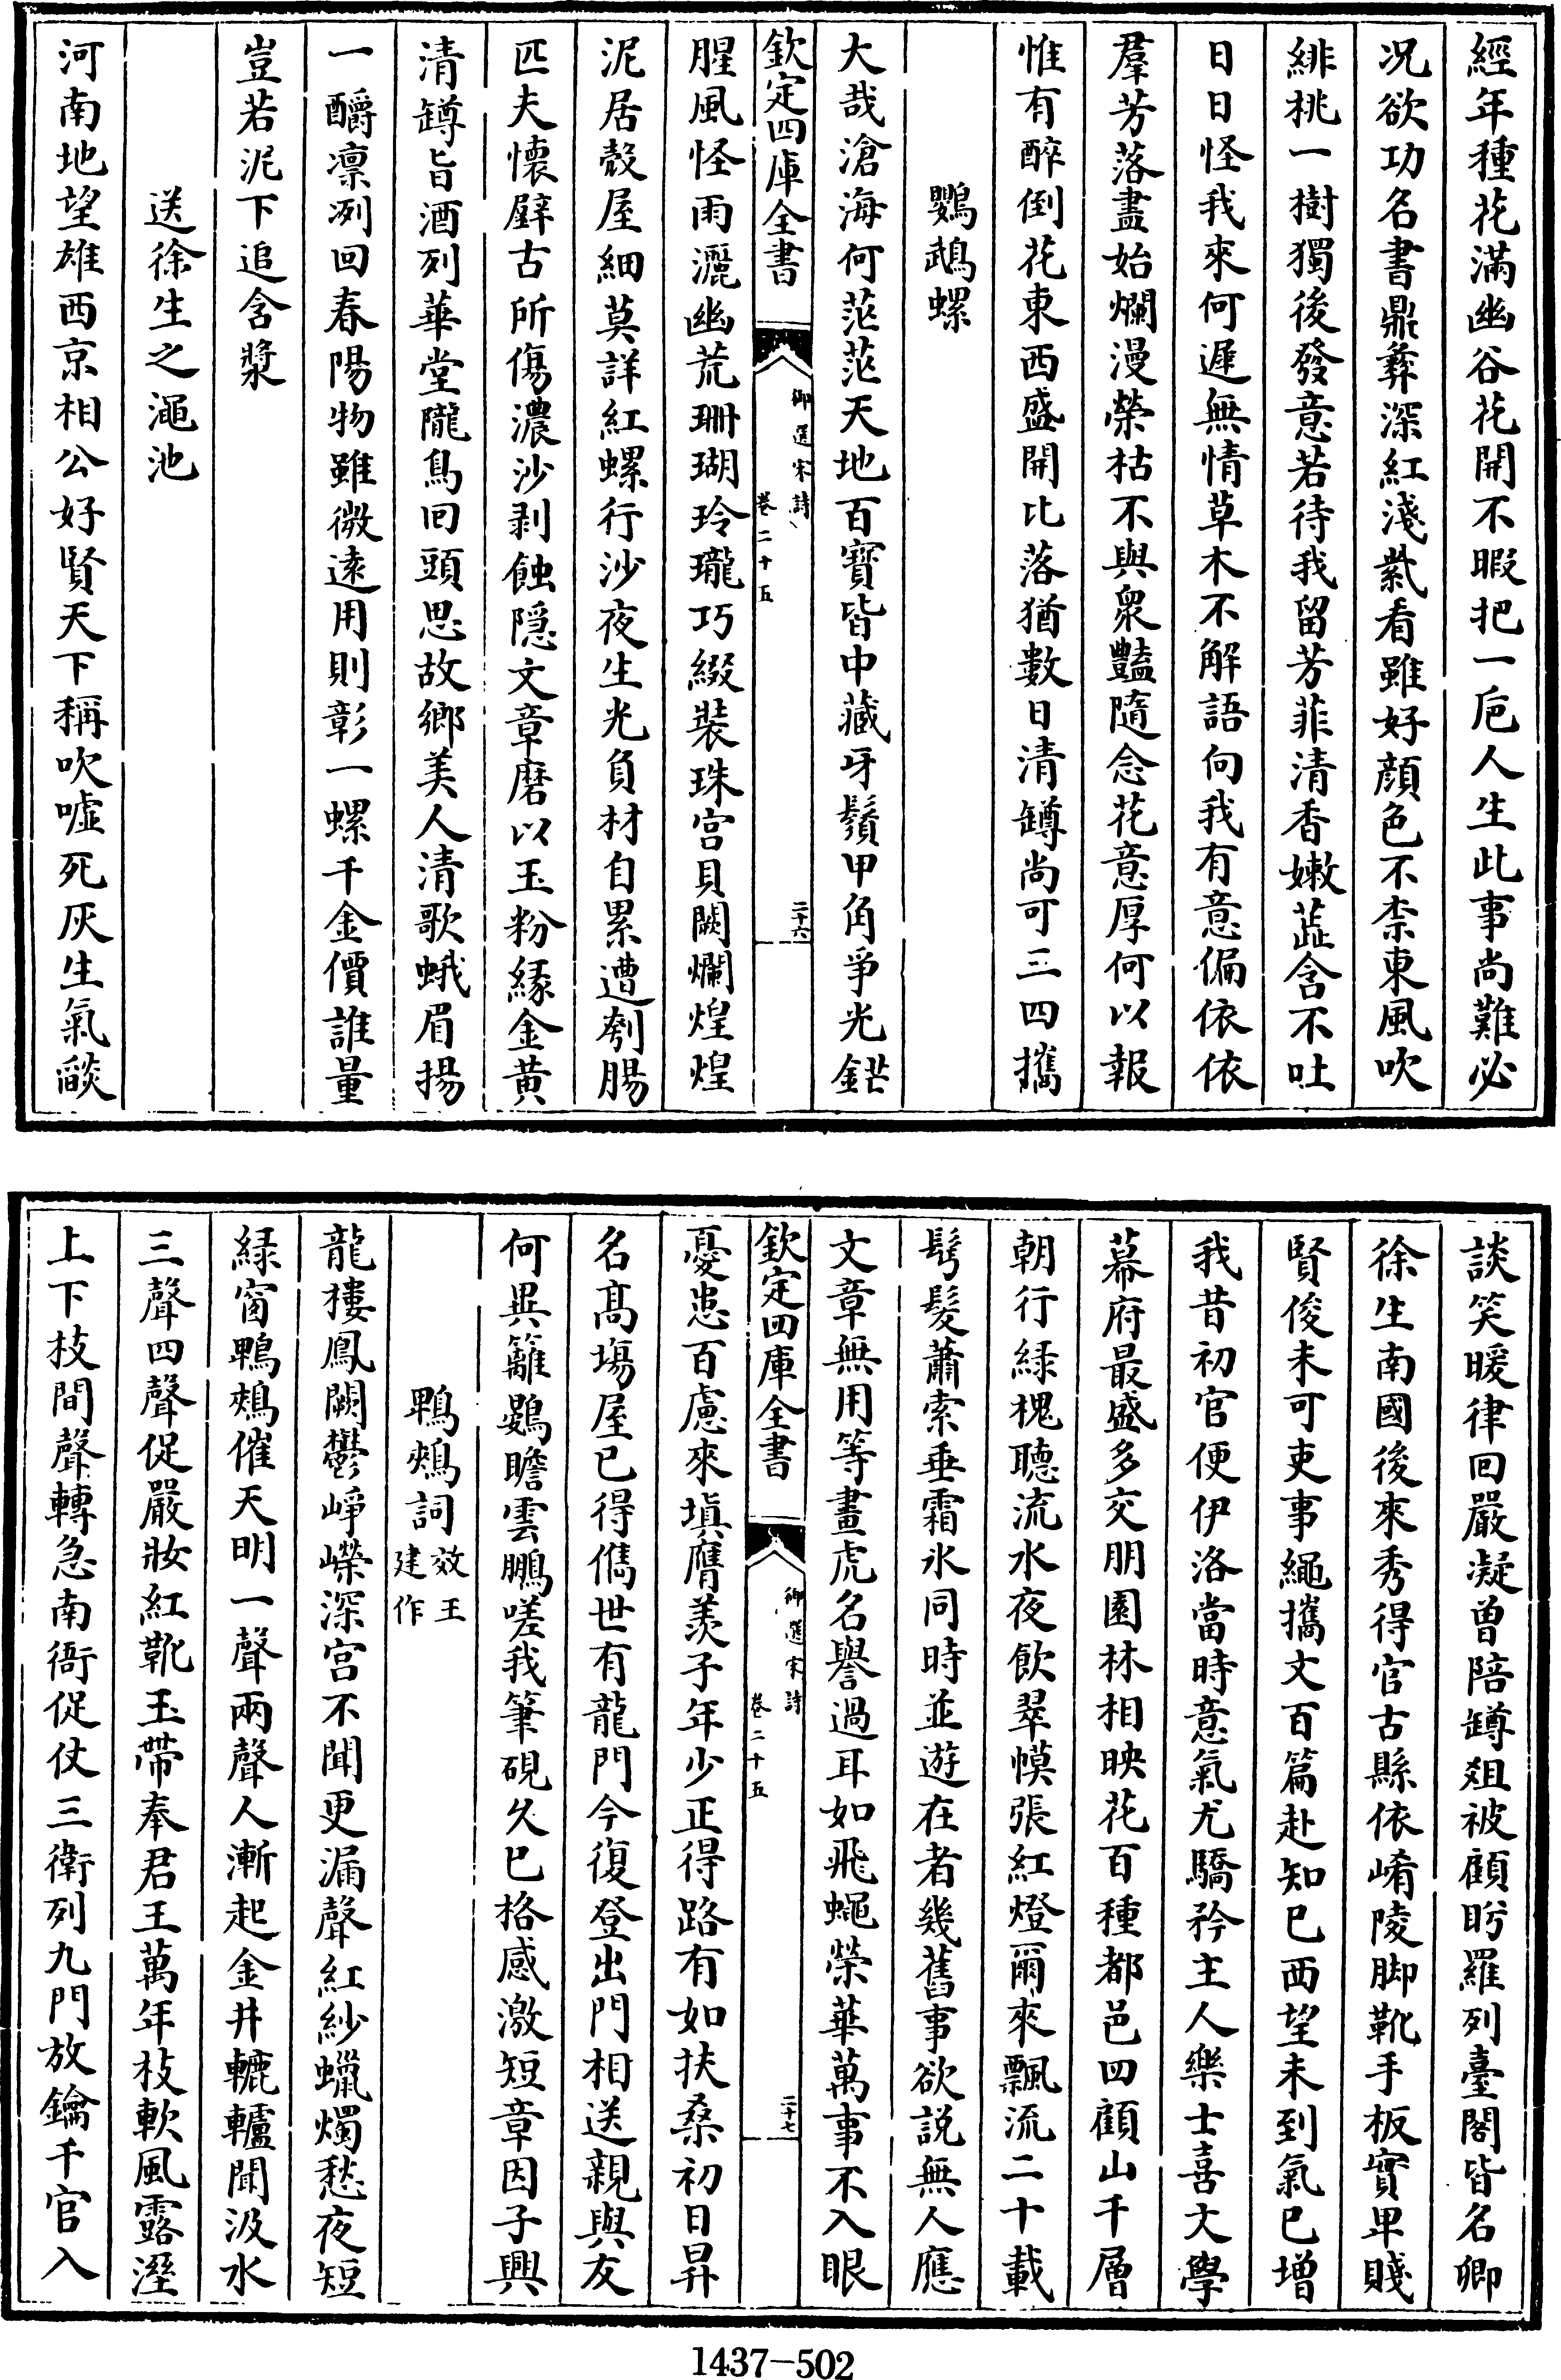 經年種花滿幽谷花開不暇把一巵人生此事尚難必
况欲功名書鼎彝深紅淺紫看雖好顔色不柰東風吹
緋桃一樹獨後發意若待我留芳菲清香嫩蕋含不吐
日日怪我來何遲無情草木不解語向我有意偏依依
羣芳落盡始爛漫榮枯不與衆豔隨念花意厚何以報
惟有醉倒花東西盛開比落猶數日清罇尚可三四攜
鸚鵡螺
大哉滄海何茫茫天地百寳皆中藏牙鬚甲角爭光鋩
欽定四庫全書
御選宋詩
卷二十五
二十六
腥風怪雨灑幽荒珊瑚玲瓏巧綴裝珠宫貝闕爛煌煌
泥居殼屋細莫詳紅螺行沙夜生光負材自累遭刳腸
匹夫懷璧古所傷濃沙剥蝕隠文章磨以玉粉緣金黄
清罇旨酒列華堂隴鳥回頭思故鄉美人清歌蛾眉揚
一釂凛冽回春陽物雖微遠用則彰一螺千金價誰量
豈若泥下追含漿
送徐生之澠池
河南地望雄西京相公好賢天下稱吹嘘死灰生氣燄
談笑暖律回嚴凝曽陪罇爼被顧盻羅列臺閣皆名卿
徐生南國後來秀得官古縣依崤陵脚靴手板實卑賤
賢俊未可吏事繩攜文百篇赴知已西望未到氣已增
我昔初官便伊洛當時意氣尤驕矜主人樂士喜文學
幕府最盛多交朋園林相映花百種都邑四顧山千層
朝行緑槐聽流水夜飲翠幙張紅燈爾來飄流二十載
髩髮蕭索垂霜氷同時並遊在者幾舊事欲説無人應
文章無用等畫虎名譽過耳如飛蠅榮華萬事不入眼
欽定四庫全書
御選宋詩
卷二十五
二十七
憂患百慮來塡膺羨子年少正得路有如扶桑初日昇
名髙塲屋已得儁世有龍門今復登出門相送親與友
何異籬鷃瞻雲鵬嗟我筆硯久已格感激短章因子興
鵯鵊詞效王建作
龍樓鳳闕鬱崢嶸深宫不聞更漏聲紅紗蠟燭愁夜短
緑窗鵯鵊催天明一聲兩聲人漸起金井轆轤聞汲水
三聲四聲促嚴妝紅靴玉帶奉君王萬年枝軟風露溼
上下枝間聲轉急南衙促仗三衛列九門放鑰千官入
1437-502